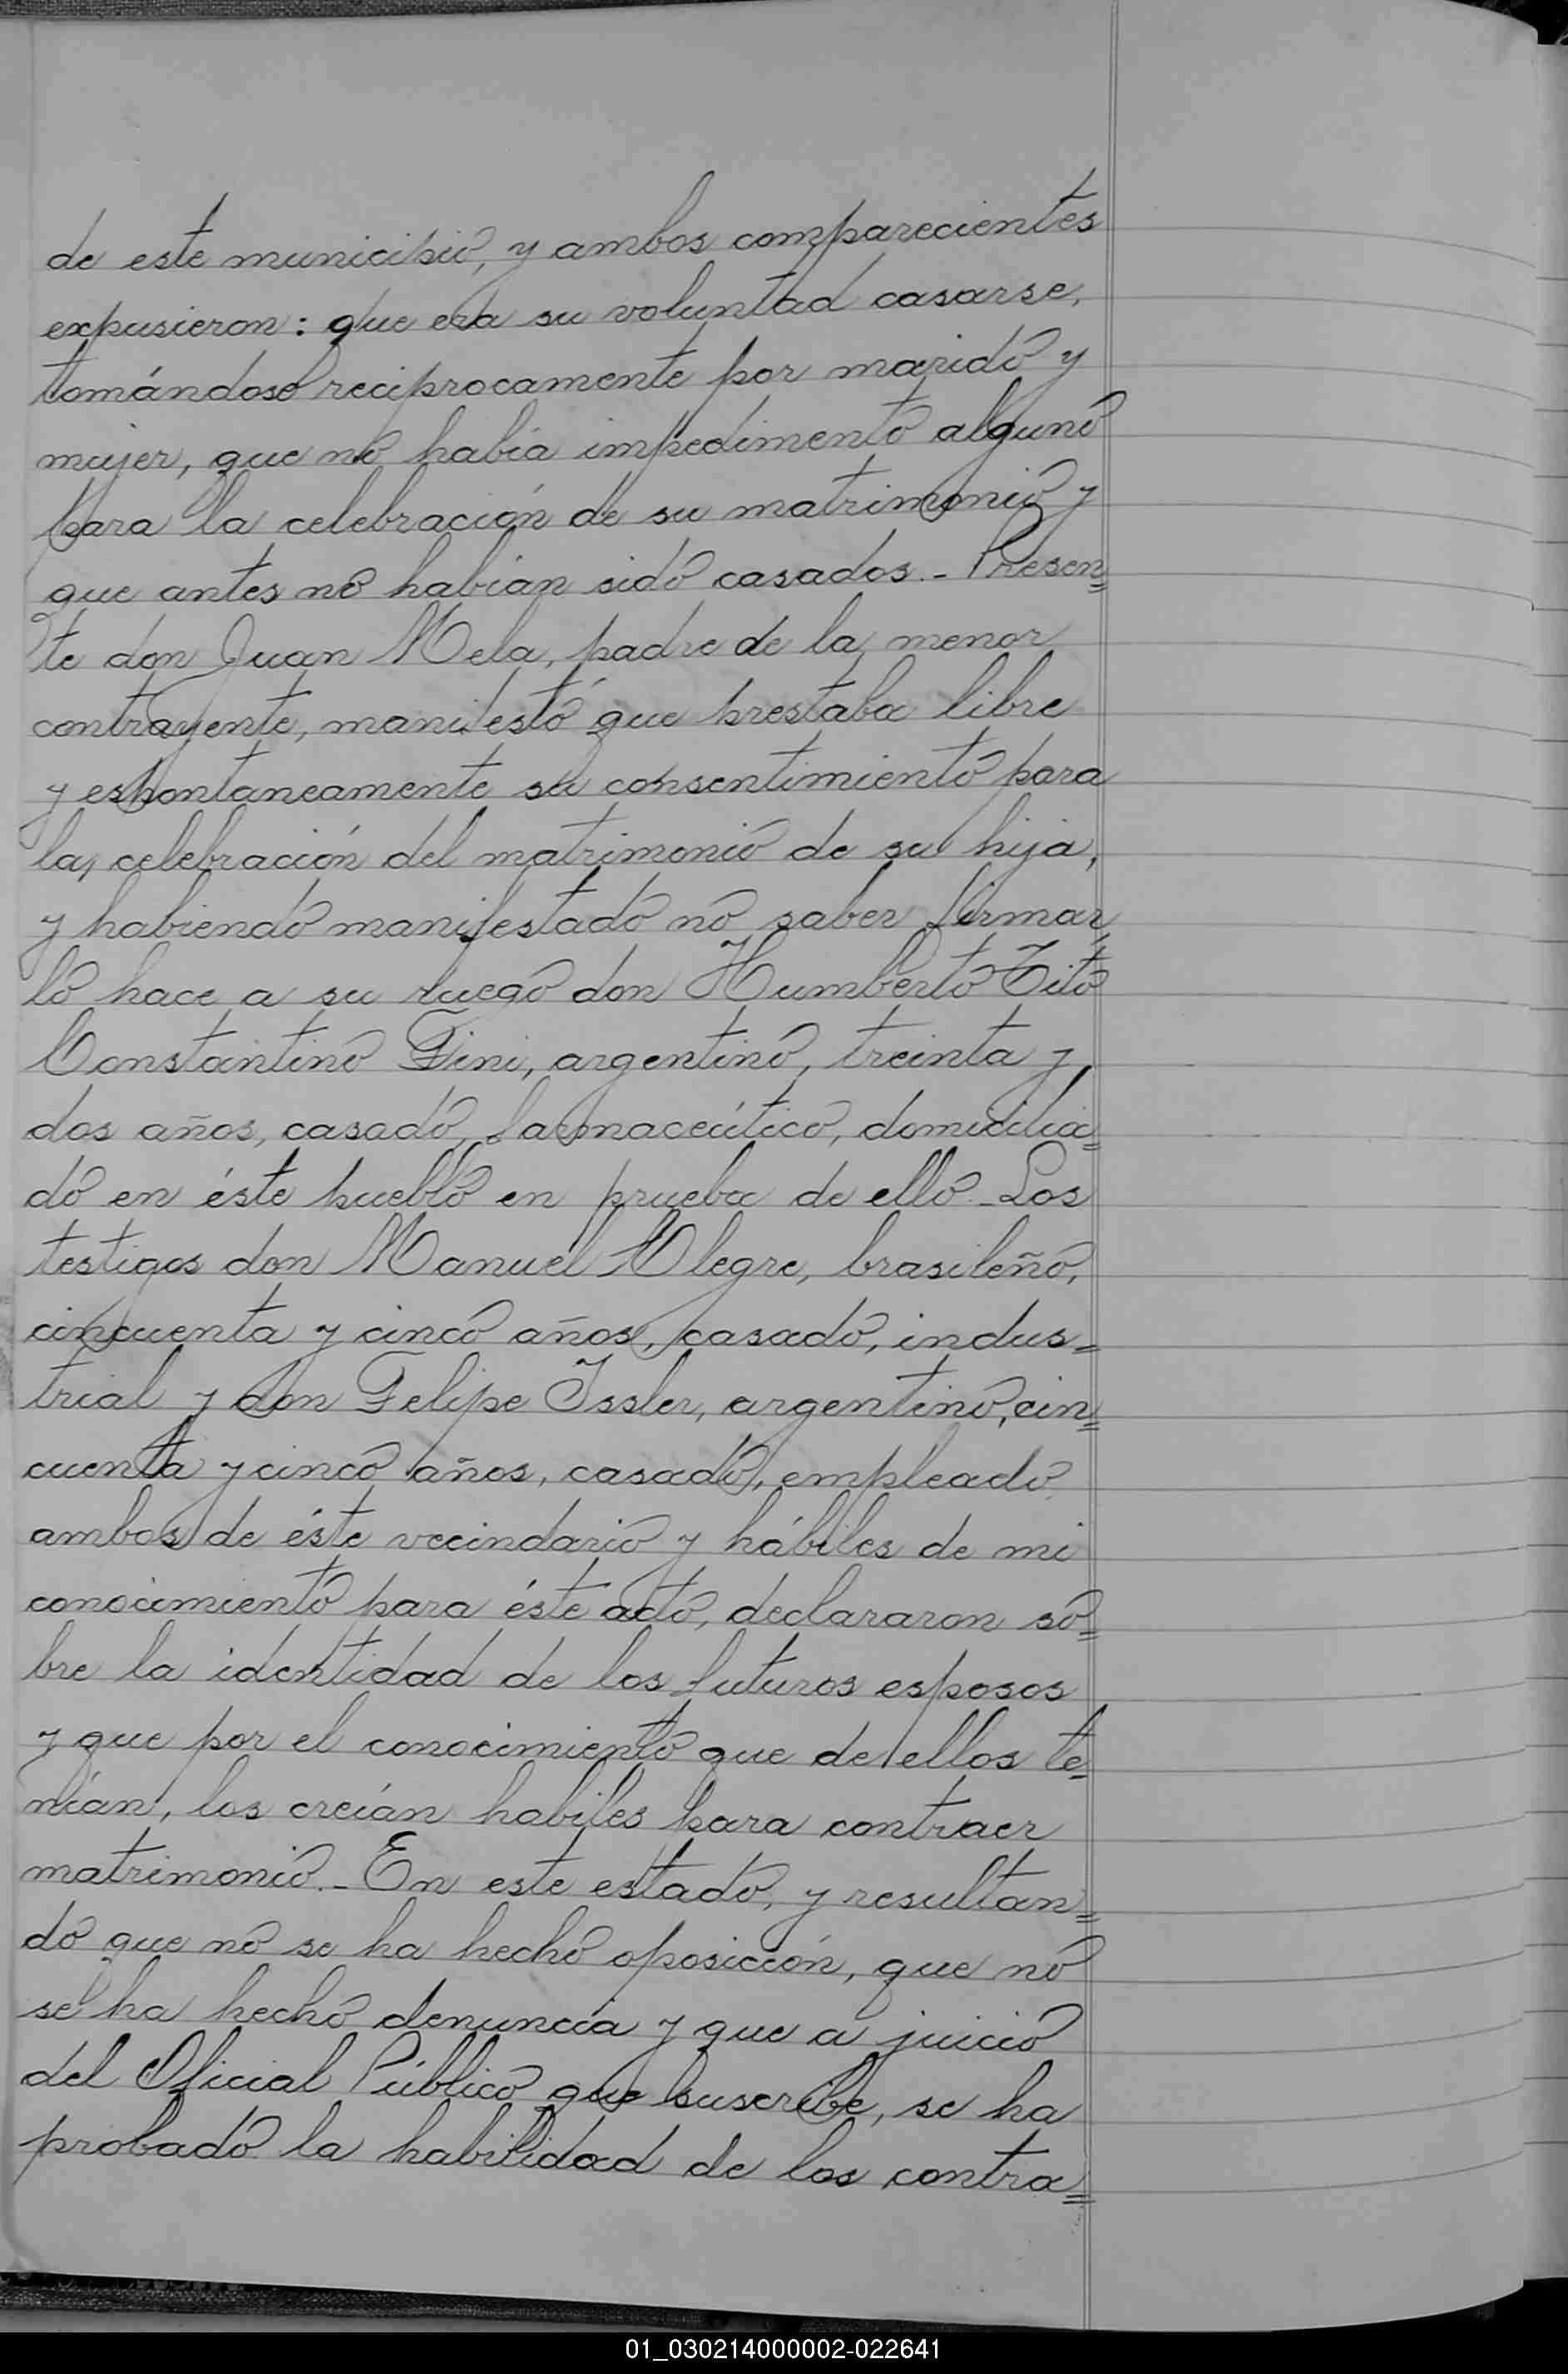 de este municipio, y ambos comparecientes
expusieron: que era su voluntad casarse,
tomándose reciprocamente por marido y
mujer, que no había impedimento alguno
para la celebración de su matrimonio y
que antes no habían sido casados.- Presen=
te don Juan Mela, padre de la menor
contrayente, manifestó que prestaba libre
y espontaneamente su consentimiento para
la celebración del matrimonio de su hija,
y habiendo manifestado no saber firmar,
lo hace a su ruego don Humberto Tito
Constantino Fini, argentino, treinta y
dos años, casado, farmaceútico, domicilia=
do en éste pueblo en prueba de ello.- Los
testigos don Manuel Alegre, brasileño,
cincuenta y cinco años, casado, indus=
trial y don Felipe Issler, argentino, cin=
cuenta y cinco años, casado, empleado,
ambos de éste vecindario y hábiles de mi
conocimiento para éste acto, declararon so=
bre la identidad de los futuros esposos
y que por el conocimiento que de ellos te=
nían, los creían habiles para contraer
matrimonio.- En este estado, y resultan=
do que no se ha hecho oposición, que no
se ha hecho denuncia y que a juicio
del Oficial Público que suscribe, se ha
probado la habilidad de los contra=
01_030214000002-022641